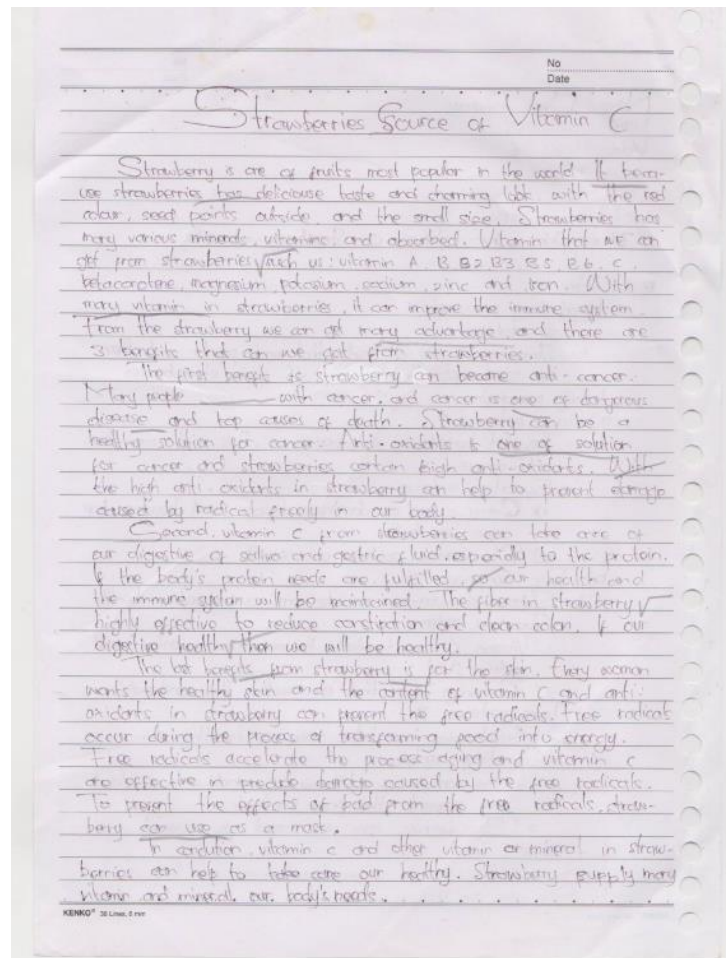 No
Date
Strawberries Source of Vitamin C
Strawberry is one of fruits most popular in the world It beca-
use strawberries has deliciouse taste and charming look with the red
colour, seed points outside and the small size. Strawberries has
many various minerals, vitamins and absorbed. Vitamin that we can
get from strawberries such us : vitamin A, B, B2 B3 B5, B6, C,
betacarotene, magnesium, potassium, sodium, zinc and iron. With
many vitamin in strawberries, it can improve the immune system.
From the strawberry we can get many advantage and there are
3 benefits that can we get from strawberries.
The first benefit is strawberry can become anti-cancer.
Many people with cancer, and cancer is one of dangerous
disease and top causes of death. Strawberry can be a
healthy solution for cancer. Anti-oxidants is one of solution
for cancer and strawberries contain high anti-oxidants. With
the high anti oxidants in strawberry can help to prevent damage
caused by radical freely in our body.
Second, vitamin c from strawberries can take care of
our digestive of saliva and gastric fluid, especially to the protein.
If the body's protein needs are fulfilled, so our health and
the immune system will be maintained. The fiber in strawberry
highly effective to reduce constipation and clean colon. If our
digestive healthy, then we will be healthy.
The last benefits from strawberry is for the skin. Every woman
wants the healthy skin and the content of vitamin C and anti-
oxidants in strawberry can prevent the free radicals. Free radicals
occur during the process of transforming food into energy.
Free radicals accelerate the process aging and vitamin c
are effective in damage caused by the free radicals.
To prevent the effects of bad from the free radicals, straw-
berry can use as a mask.
In vitamin c and other vitamin or mineral in straw-
berries can help to take care our healthy. Strawberry supply many
vitamin and mineral our body's needs.
KENKO® 36 Lines, 8 mm